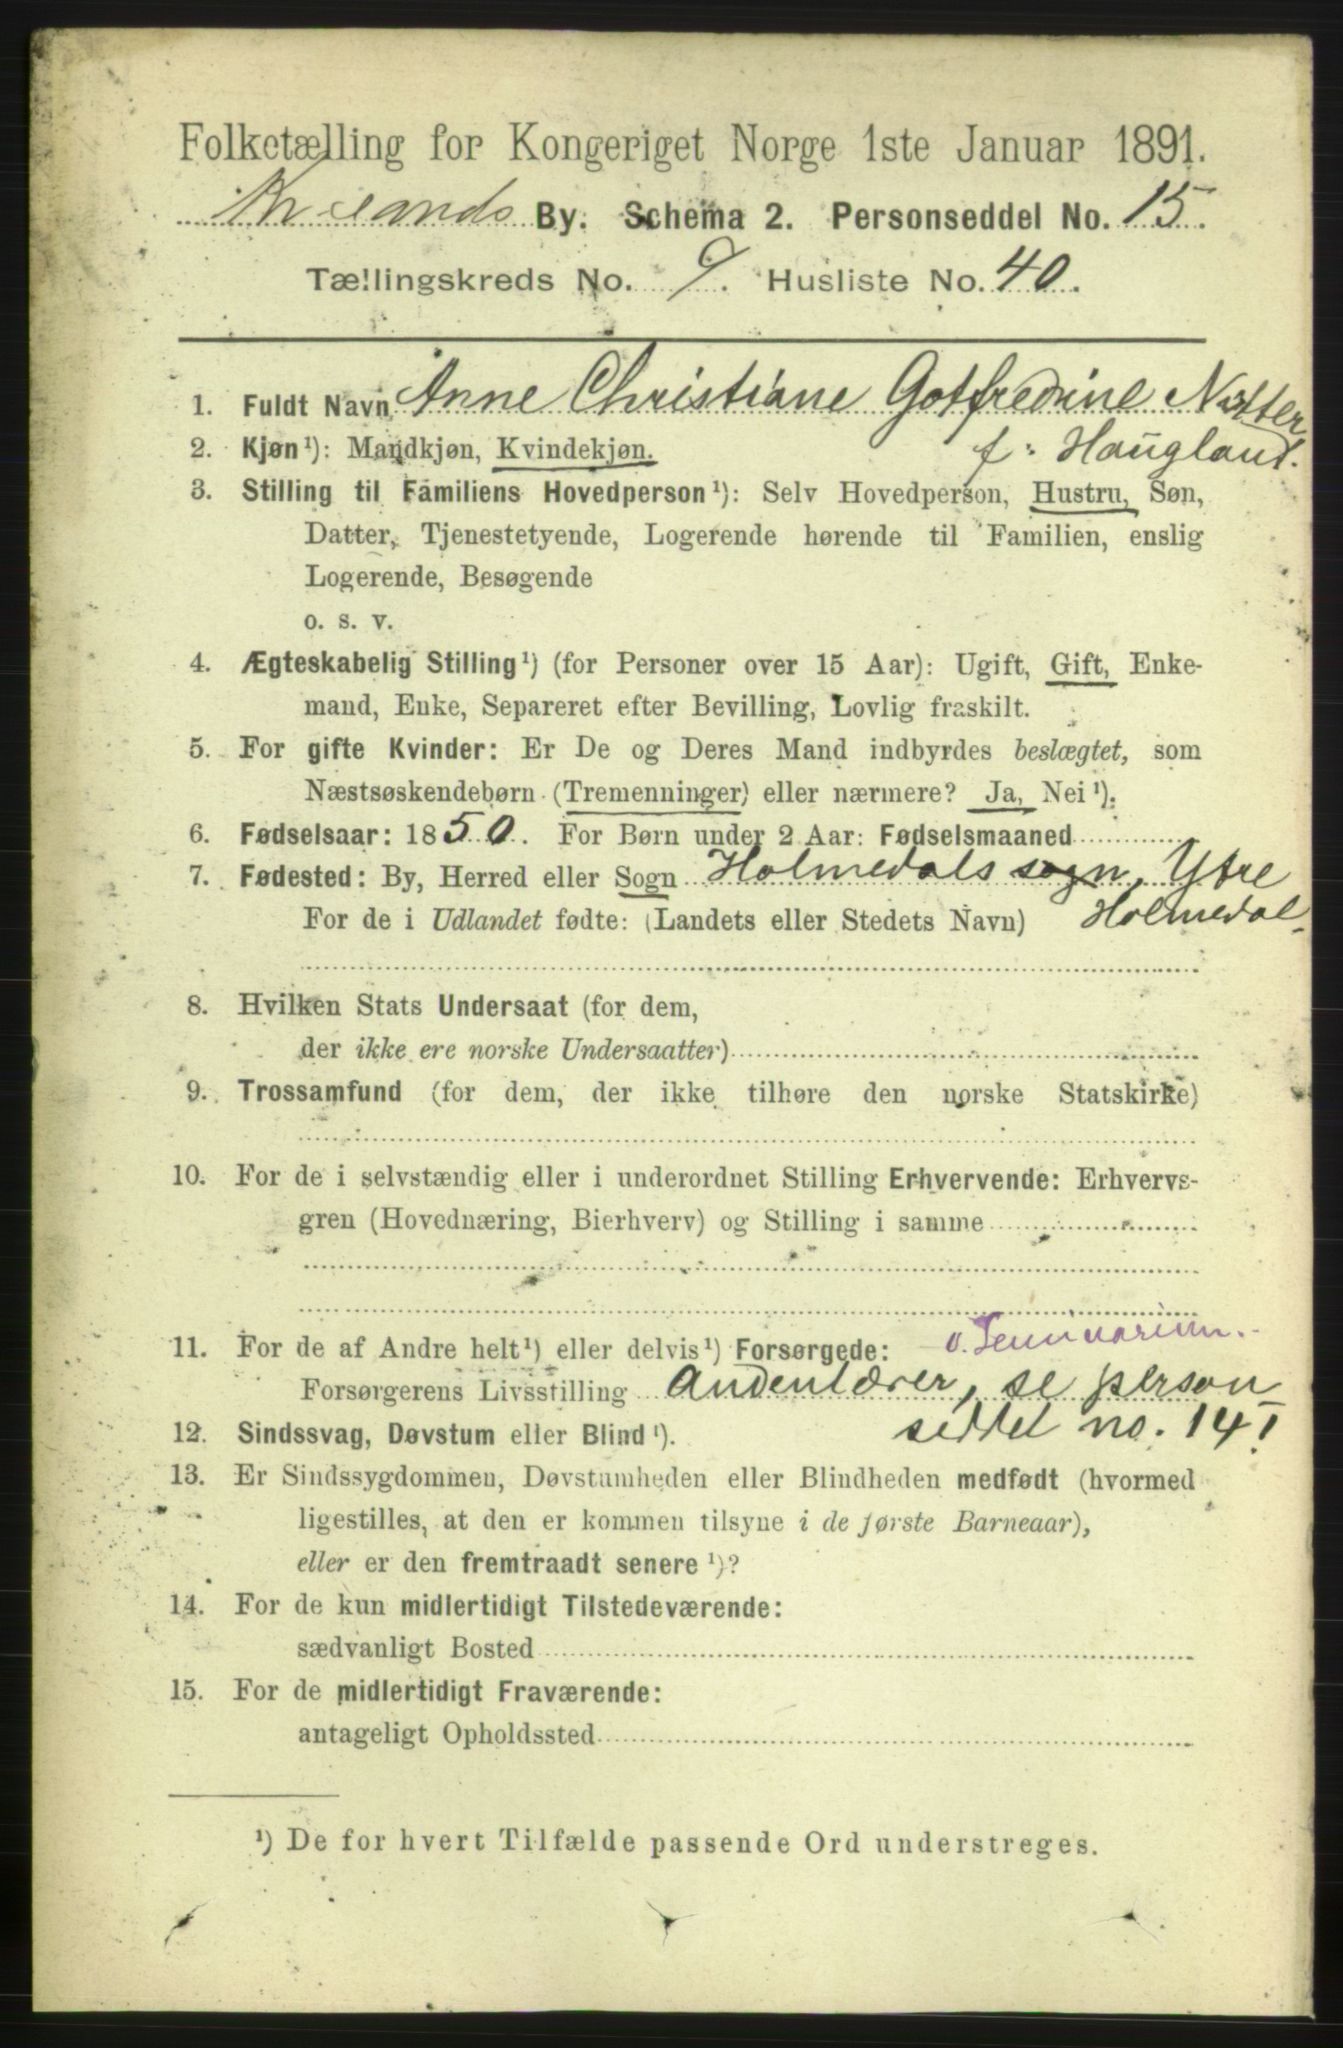 Folketælling for Kongeriget Norge 1ste Januar 1891.
Krsands By. Schema 2. Personseddel No. 15.
Tællingskreds No. 9. Husliste No. 40.
1. Fuldt Navn Anne Christiane Gotfredine Natter
f. Haugland.
2. Kjøn¹): Mandkjøn, Kvindekjøn.
3. Stilling til Familiens Hovedperson¹): Selv Hovedperson, Hustru, Søn,
Datter, Tjenestetyende, Logerende hørende til Familien, enslig
Logerende, Besøgende
o. s. v.
4. Ægteskabelig Stilling¹) (for Personer over 15 Aar): Ugift, Gift, Enke-
mand, Enke, Separeret efter Bevilling, Lovlig fraskilt.
5. For gifte Kvinder: Er De og Deres Mand indbyrdes beslægtet, som
Næstsøskendebørn (Tremenninger) eller nærmere? Ja, Nei¹).
6. Fødselsaar: 1850. For Børn under 2 Aar: Fødselsmaaned
7. Fødested: By, Herred eller Sogn Holmedals sogn, Ytre
Holmedal
For de i Udlandet fødte: (Landets eller Stedets Navn)
8. Hvilken Stats Undersaat (for dem,
der ikke ere norske Undersaatter)
9. Trossamfund (for dem, der ikke tilhøre den norske Statskirke)
10. For de i selvstændig eller i underordnet Stilling Erhvervende: Erhvervs-
gren (Hovednæring, Bierhverv) og Stilling i samme
11. For de af Andre helt¹) eller delvis¹) Forsørgede: v. Seminarium.
Forsørgerens Livsstilling Andenlærer, se person
seddel no. 14!
12. Sindssvag, Døvstum eller Blind¹).
13. Er Sindssygdommen, Døvstumheden eller Blindheden medfødt (hvormed
ligestilles, at den er kommen tilsyne i de første Barneaar),
eller er den fremtraadt senere¹)?
14. For de kun midlertidigt Tilstedeværende:
sædvanligt Bosted
15. For de midlertidigt Fraværende:
antageligt Opholdssted
¹) De for hvert Tilfælde passende Ord understreges.